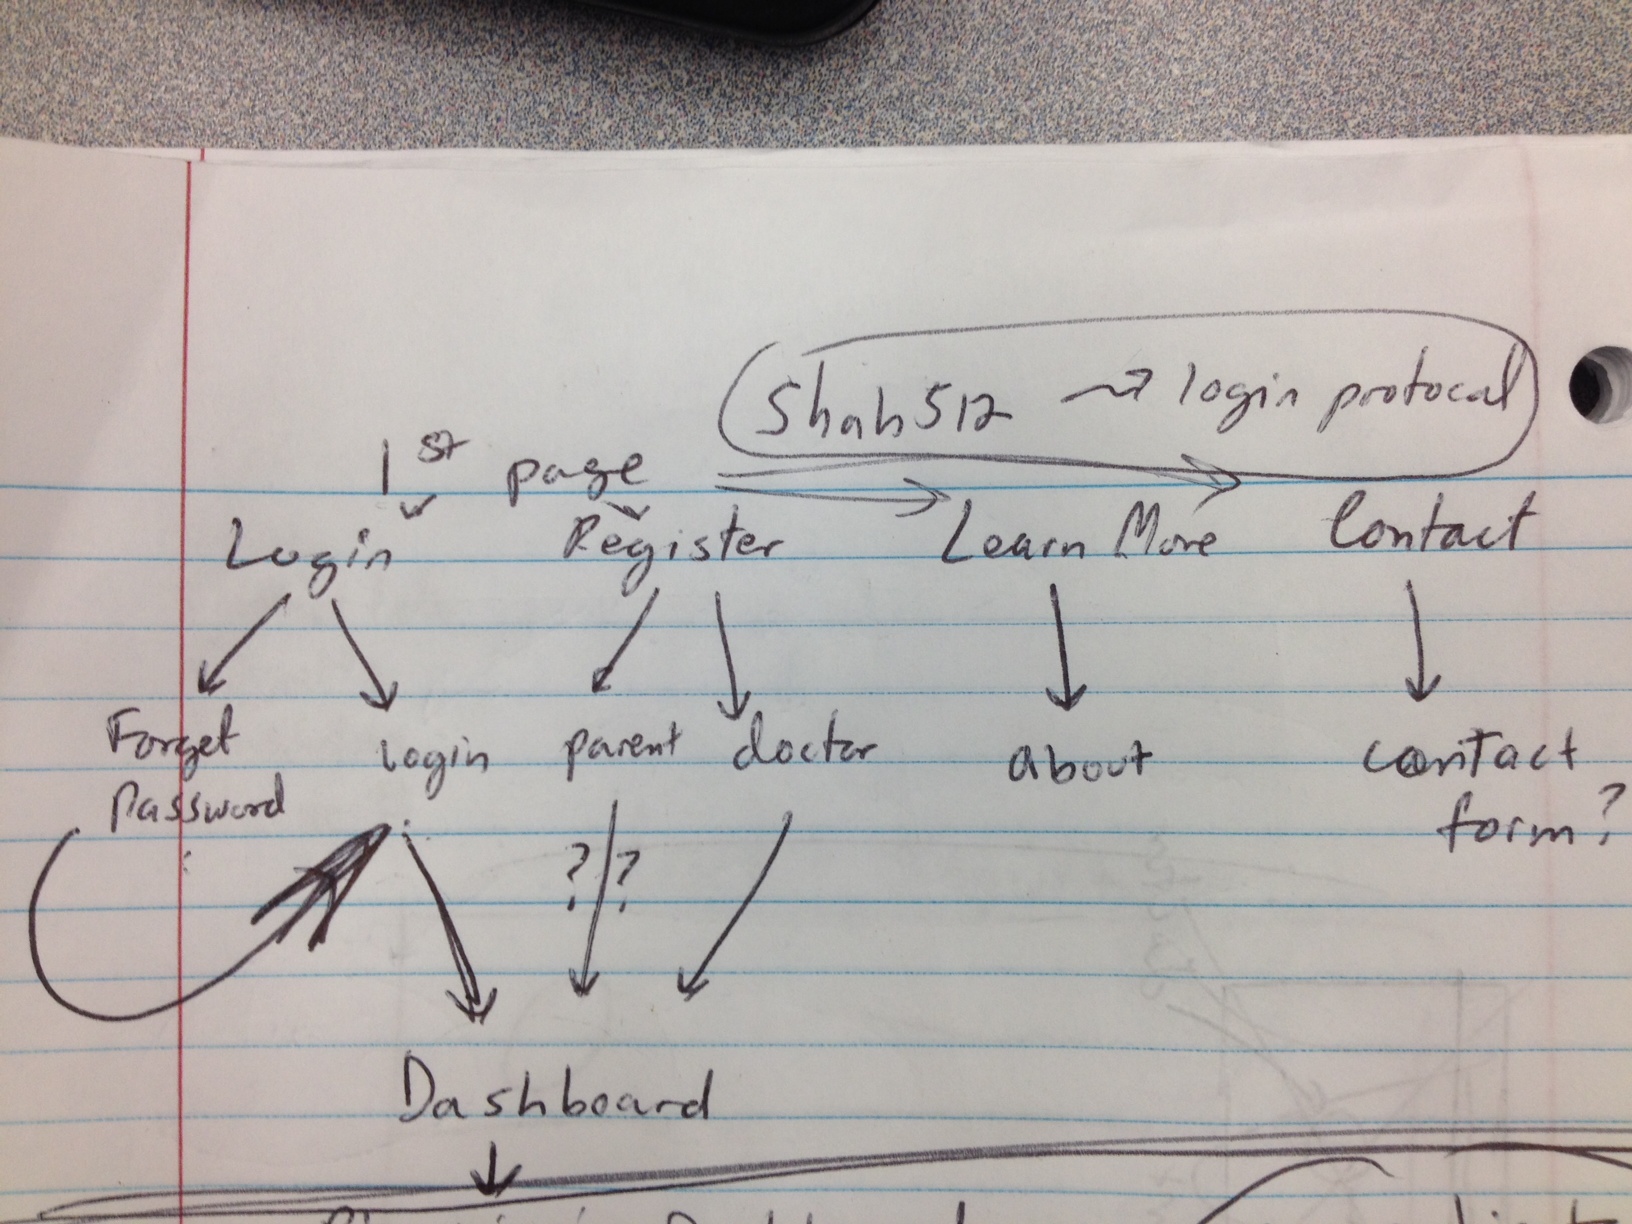 Shah512 ~> login protocal
1st page
Login Register Learn More Contact
Forget Password login parent doctor about contact form?
? / ?
Dashboard